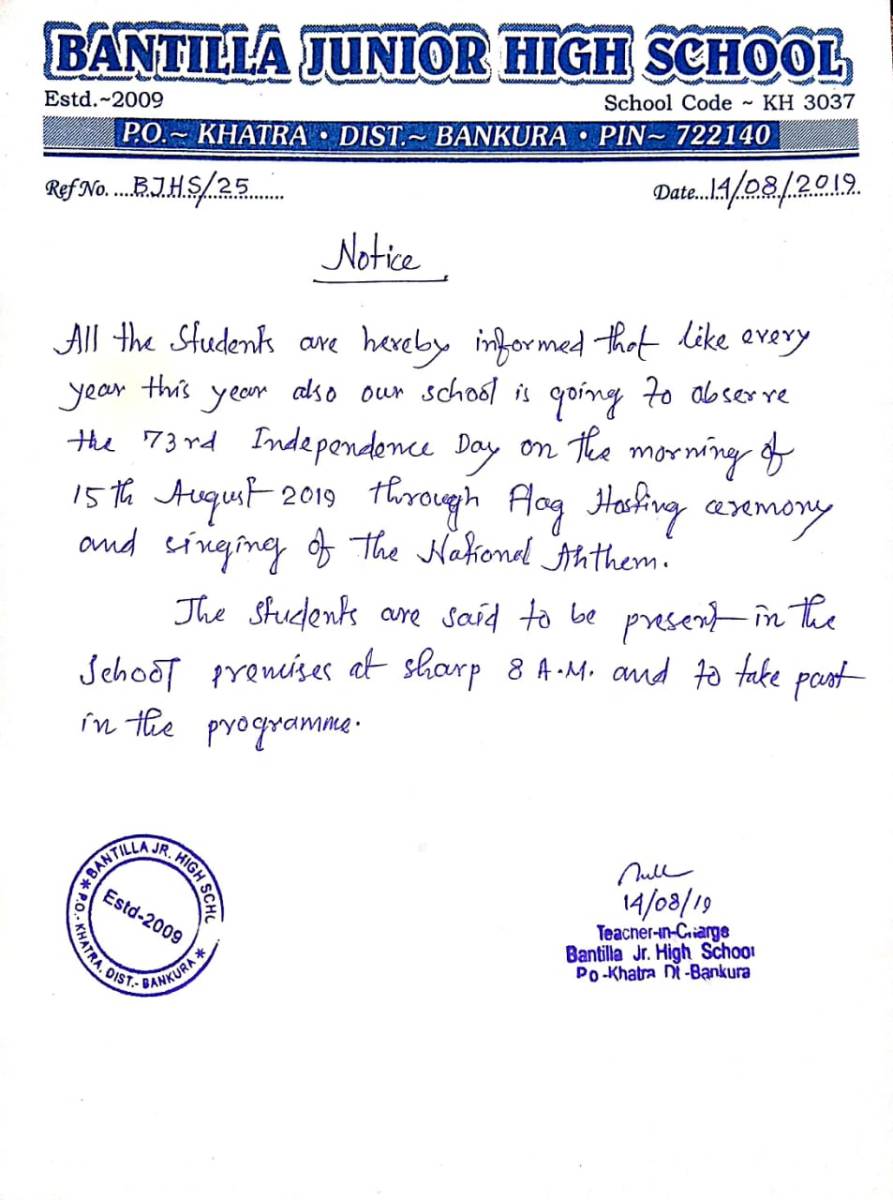 BANTILLA JUNIOR HIGH SCHOOL
Estd.~2009
School Code ~ KH 3037
P.O.~ KHATRA • DIST.~ BANKURA • PIN~ 722140
Ref No. ....BJHS/25..........
Date...14/08/2019.
Notice
All the students are hereby informed that like every
year this year also our school is going to observe
the 73rd Independence Day on the morning of
15th August 2019 through Flag Hosting ceremony
and singing of the National Anthem.
The students are said to be present in the
School premises at sharp 8 A.M. and to take part
in the programme.
BANTILLA JR. HIGH SCHO
P.O.- KHATRA, DIST.- BANKURA
Estd-2009
14/08/19
Teacher-in-Charge
Bantilla Jr. High School
Po-Khatra Dt-Bankura